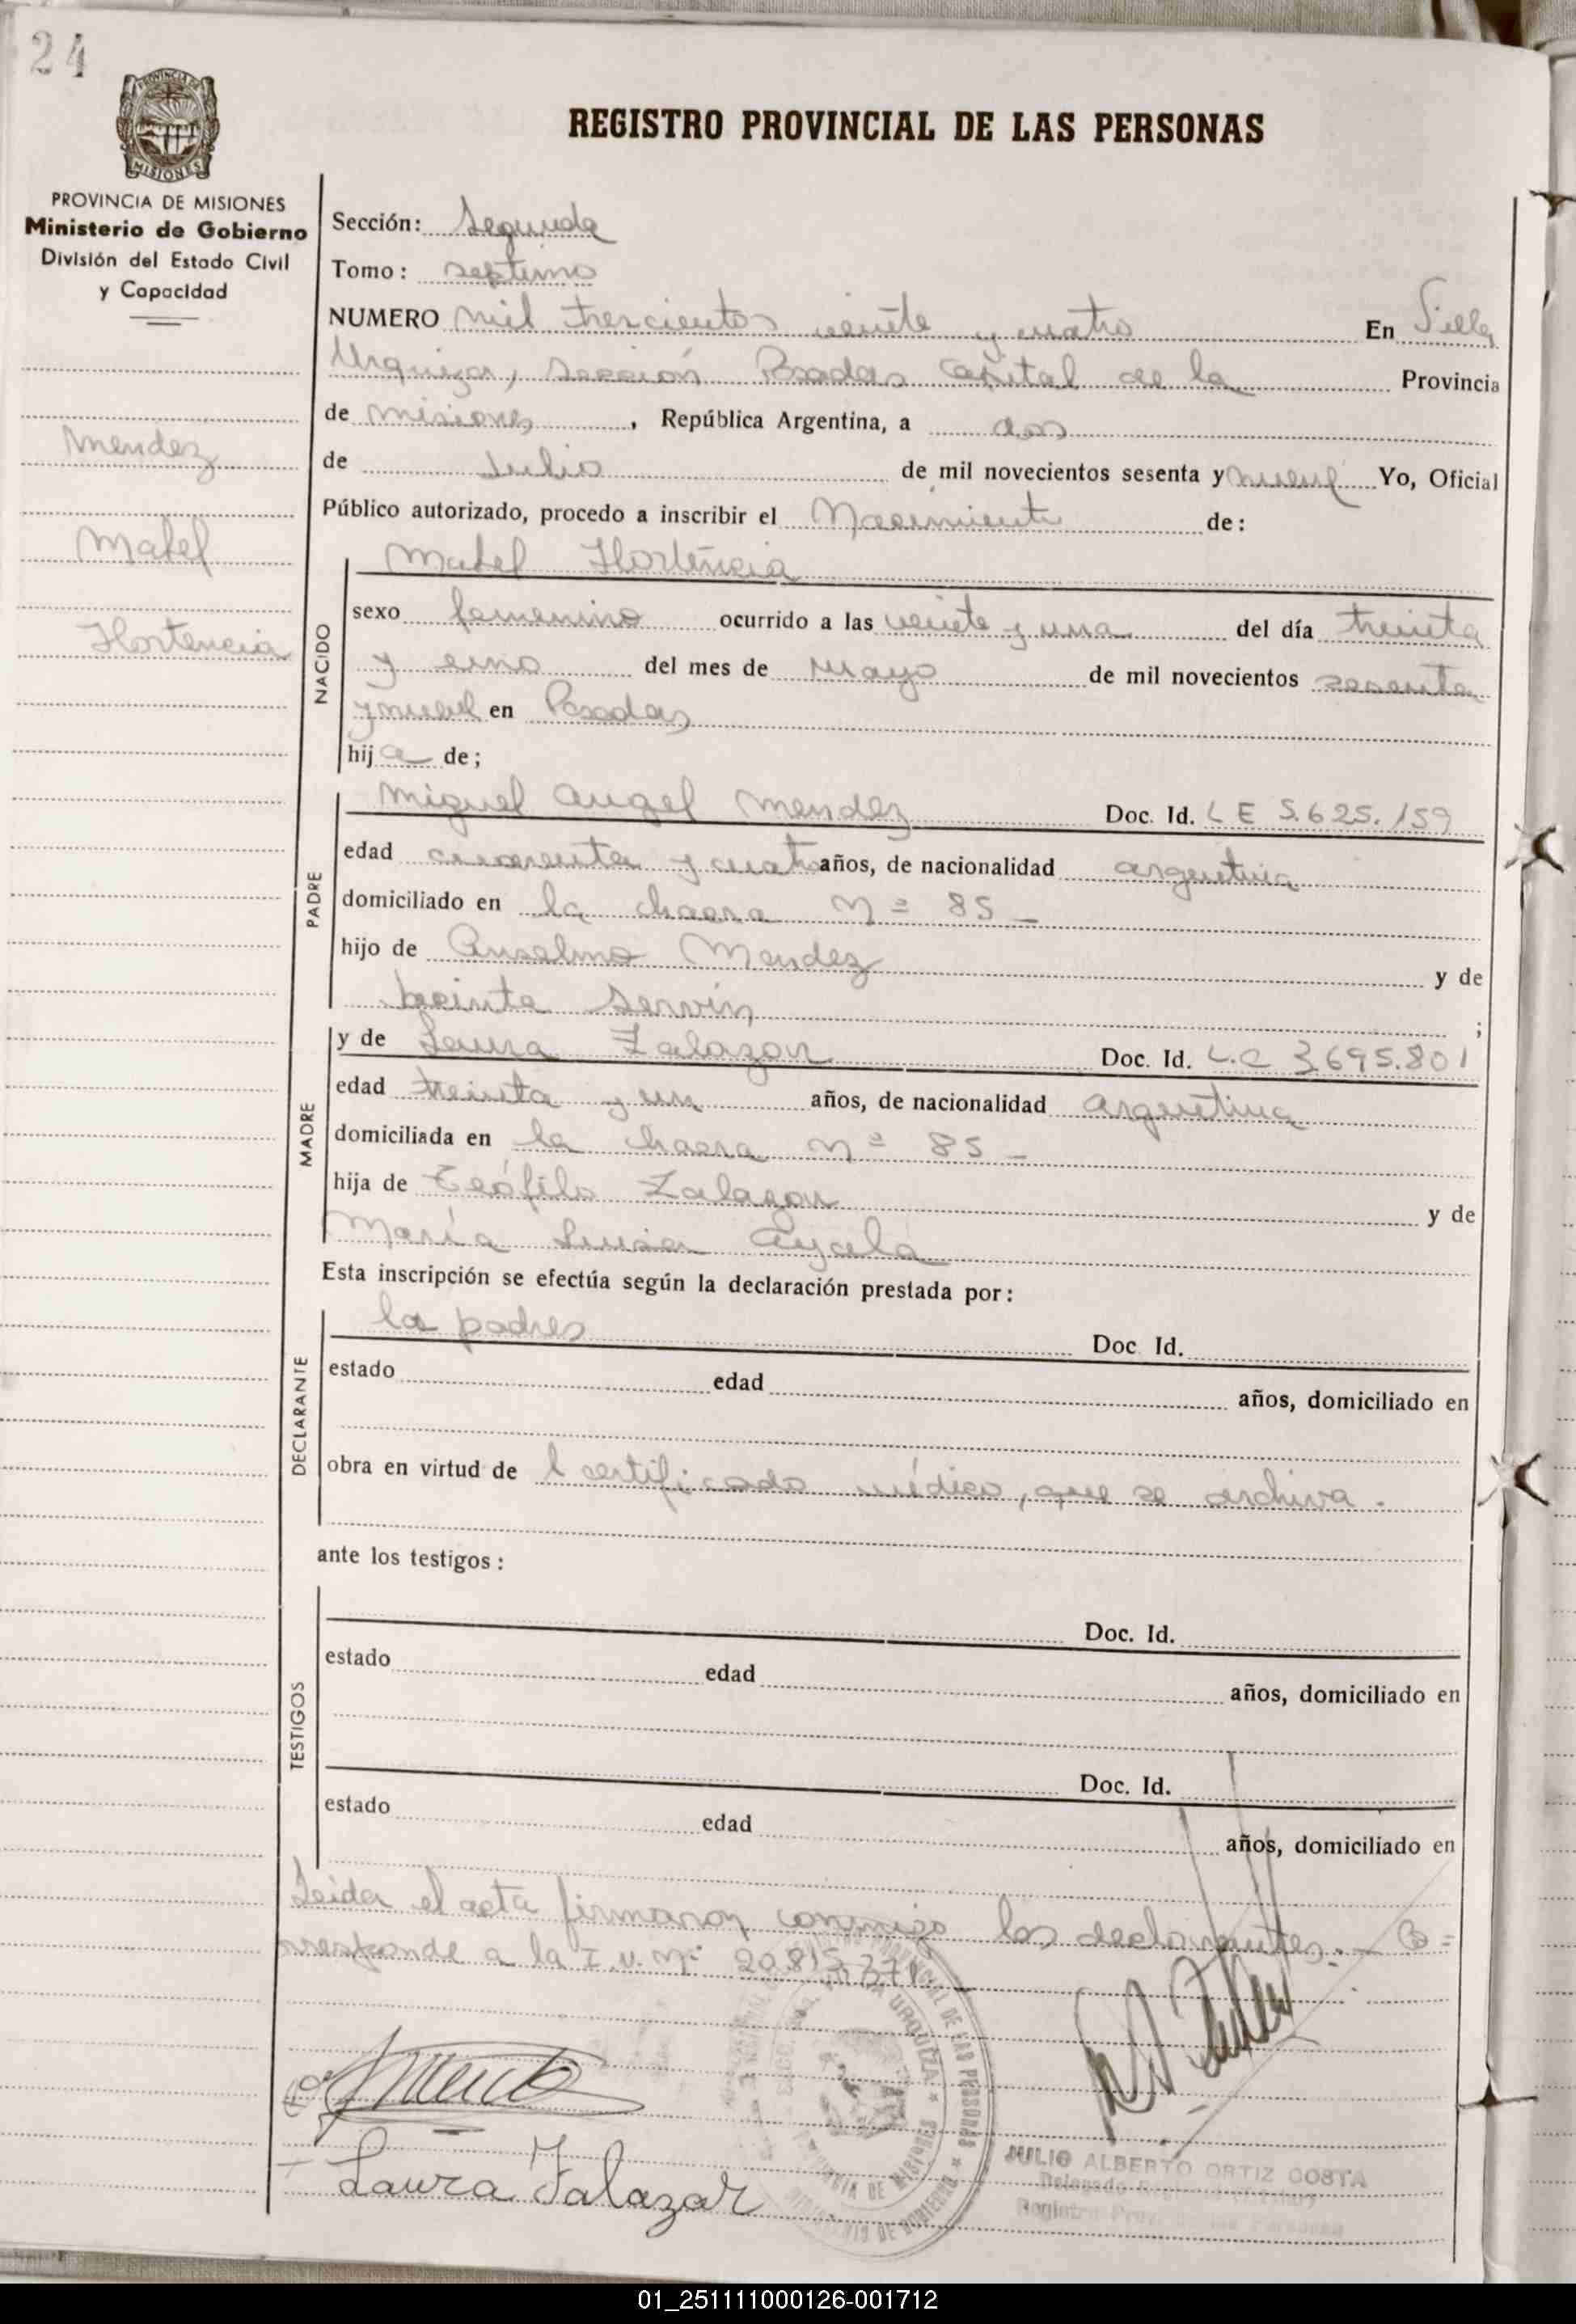 24
PROVINCIA DE MISIONES
Ministerio de Gobierno
División del Estado Civil
y Capacidad
Mendez
Mabel
Hortencia
REGISTRO PROVINCIAL DE LAS PERSONAS
Sección: Segunda
Tomo: septimo
NUMERO mil trescientos veinte y cuatro En Villa
Urquiza, Sección Posadas Capital de la Provincia
de Misiones, República Argentina, a dos
de Julio de mil novecientos sesenta y nueve Yo, Oficial
Público autorizado, procedo a inscribir el Nacimiento de:
NACIDO
Mabel Hortencia
sexo femenino ocurrido a las veinte y una del día treinta
y uno del mes de Mayo de mil novecientos sesenta
y nueve en Posadas
hija de;
PADRE
Miguel Angel Mendez Doc. Id. L E 5.625.159
edad cuarenta y cuatro años, de nacionalidad argentina
domiciliado en la chacra Nº 85 -
hijo de Anselmo Mendez y de
Servin ;
MADRE
y de Laura Zalazar Doc. Id. L.C 3.695.801
edad treinta y un años, de nacionalidad argentina
domiciliada en la chacra Nº 85 -
hija de Teófilo Zalazar y de
María Luisa Ayala
Esta inscripción se efectúa según la declaración prestada por:
DECLARANTE
lo padres Doc. Id.
estado edad años, domiciliado en
obra en virtud de l certificado médico, que se archiva.
ante los testigos:
TESTIGOS
Doc. Id.
estado edad años, domiciliado en
Doc. Id.
estado edad años, domiciliado en
Leida el acta firmaron conmigo los declarantes.- Co=
rresponde a la I.U. Nº 20.815.371
Laura Zalazar
JULIO ALBERTO ORTIZ COSTA
Delegado
Registro Prov. de las Personas
URQUIZA
DE LAS PERSONAS
DE MISIONES
MINISTERIO DE GOBIERNO
01_251111000126-001712